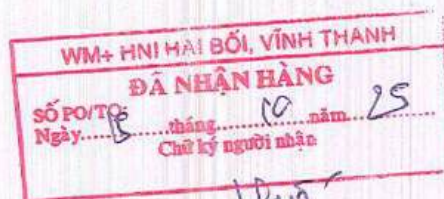 WM+ HNI HẢI BỐI, VĨNH THANH
ĐÃ NHẬN HÀNG
SỐ PO/TO:
Ngày.........tháng...10...năm...25
Chữ ký người nhận